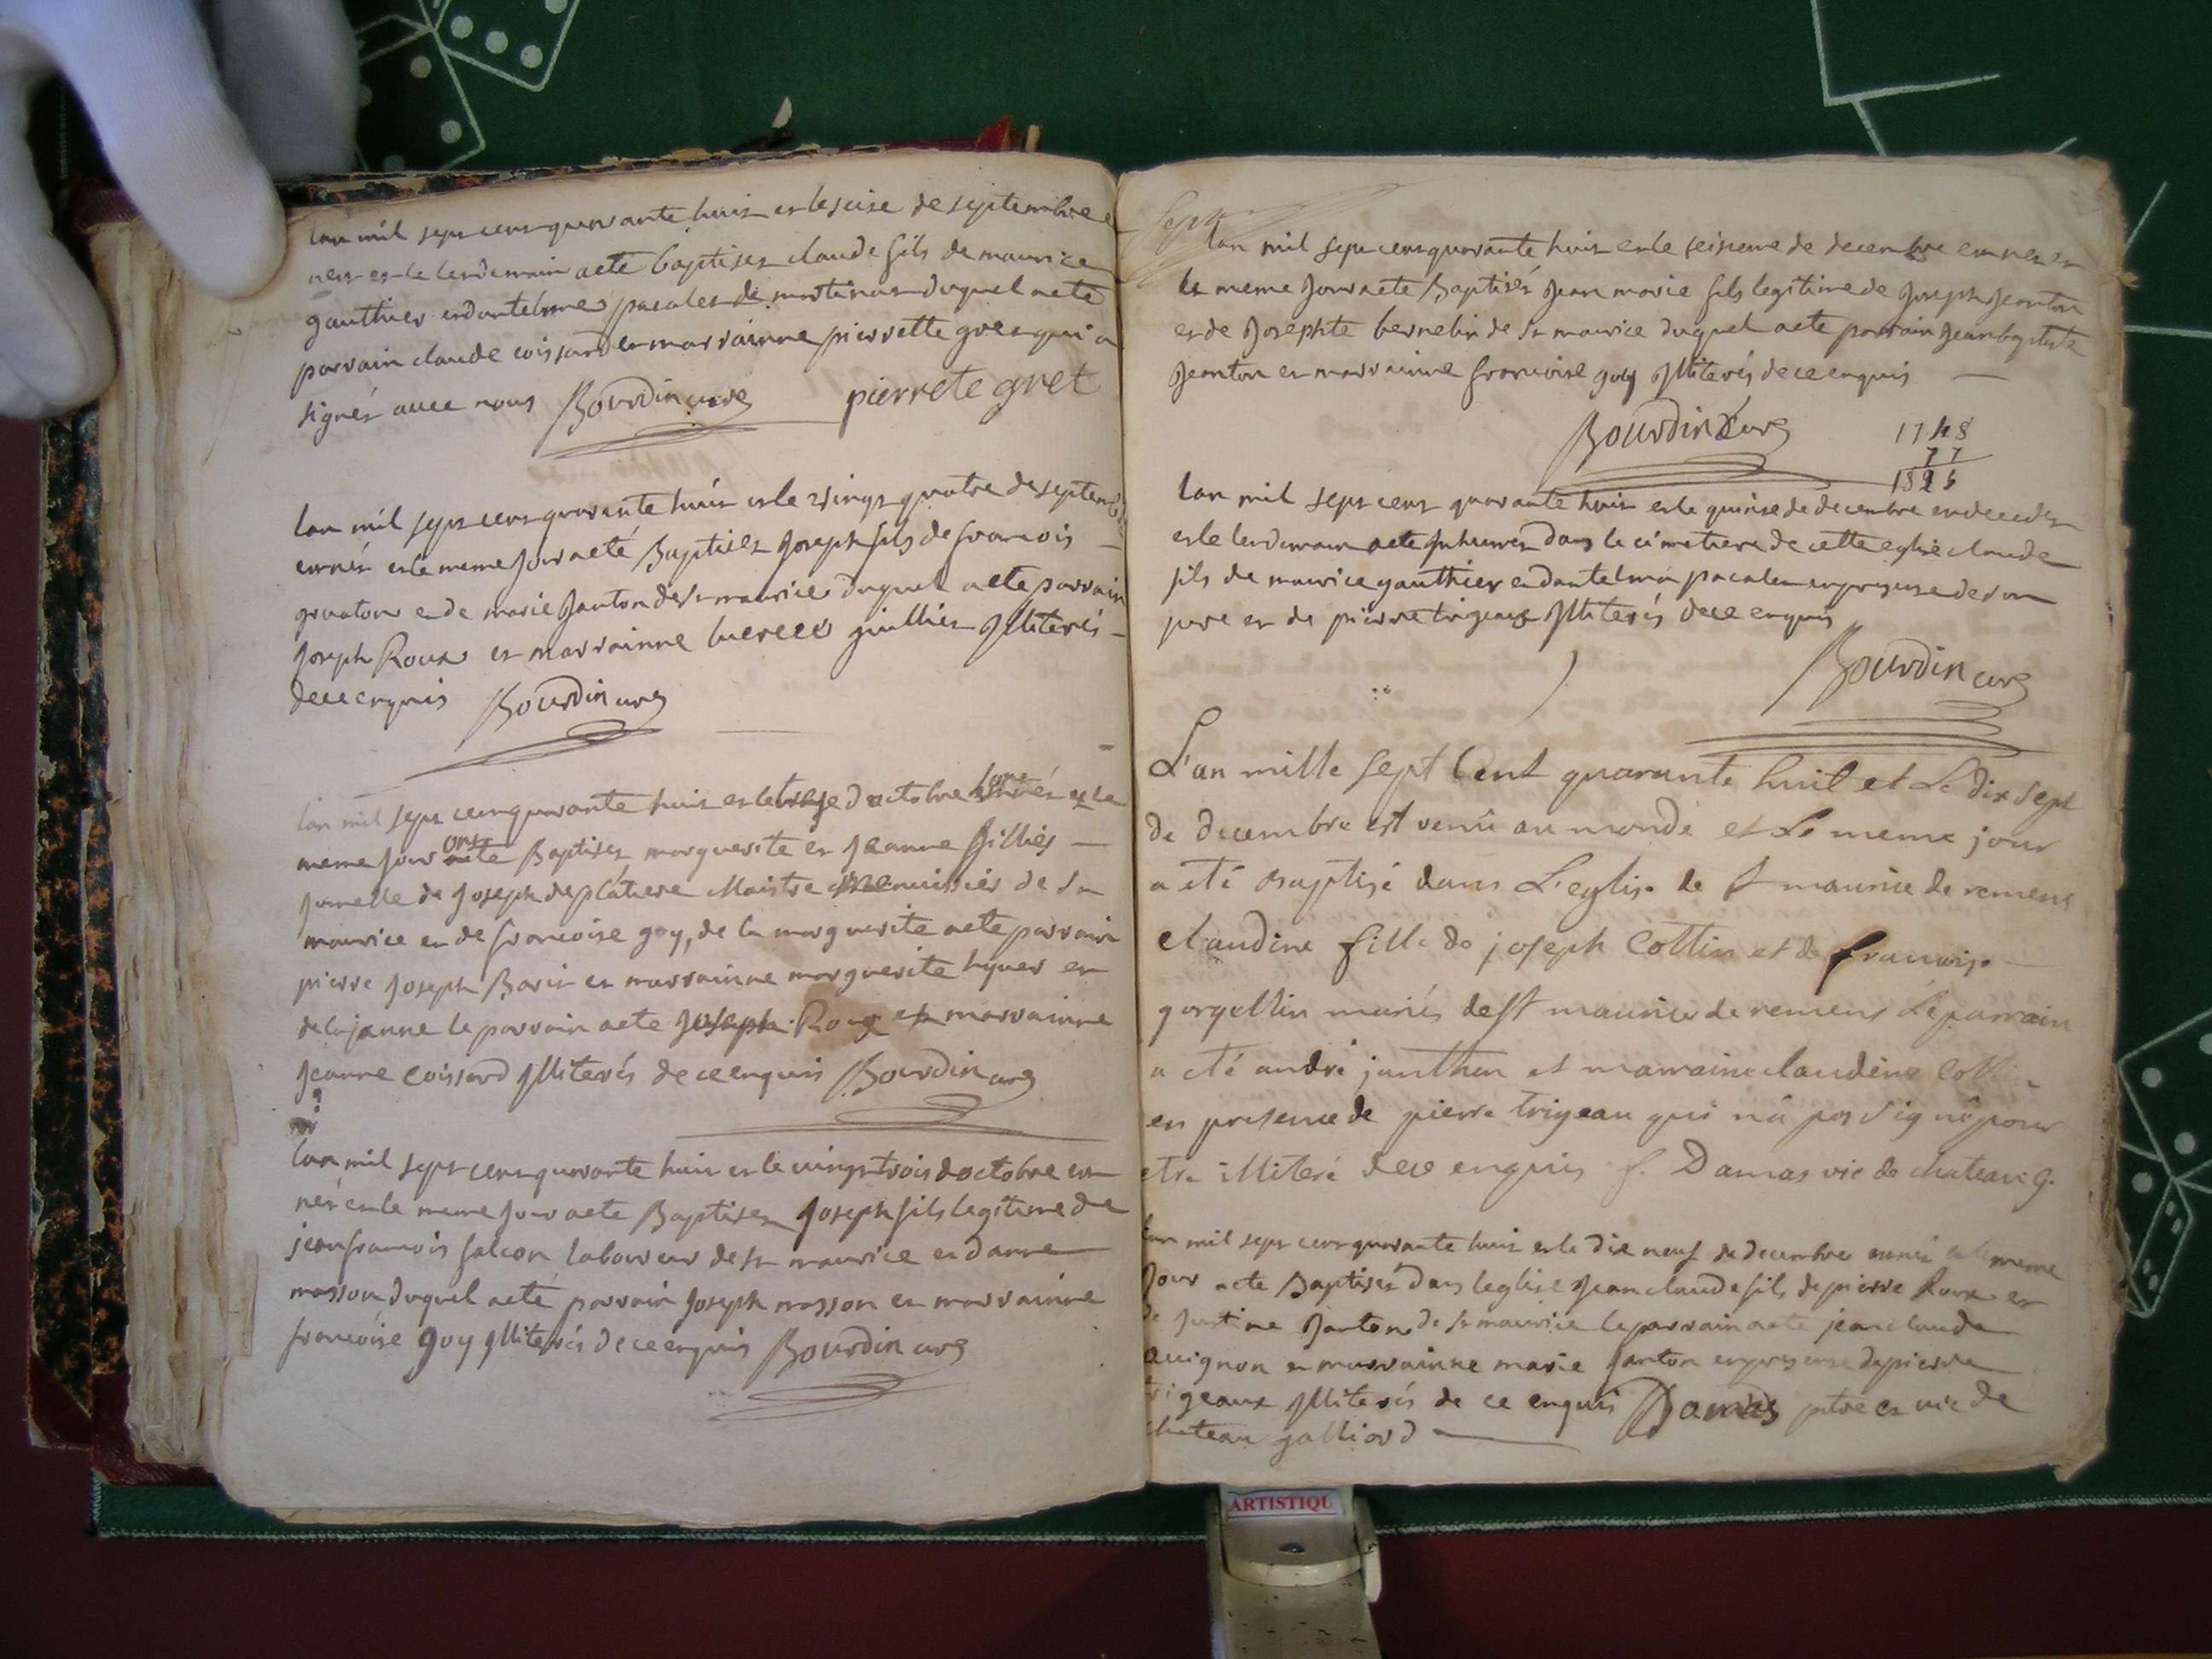 lan mil sept cens quarante huit et le seise de septembre e
nez et le lendemain a eté baptisez claude fils de maurice
gauthier et dantelme pacalet de martinas duquel a eté
parrain claude coissard et marrainne pierrette gret qui a
signez avec nous Bourdin curé pierrete gret
lan mil sept cens quarante huit et le vingt quatre de septemb
est né et le meme jour a eté Baptisez Joseph fils de francois
et de marie Janton de st maurice duquel a eté parrain
Joseph Roux et marrainne guillier Illiterés
de ce enquis Bourdin curé
lan mil sept cens quarante huit et le trese doctobre sont nés et le
meme jour ont eté Baptisez marguerite et Jeanne filliés
jumelle de Joseph deplatiere Maistre menuissier de st
maurice et de francoise goy, de la marguerite a eté parrain
pierre Joseph Barit et marrainne marguerite et
de la janne le parrain a eté Joseph Roux et marrainne
Jeanne coissard Illiterés de ce enquis Bourdin curé
lan mil sept cens quarante huit et le vingt trois doctobre est
néz et le meme jour a eté Baptisez Joseph fils legitime de
jean francois falcon laboureur de st maurice et danne
masson duquel a eté parrain Joseph masson et marrainne
francoise goy Illiterés de ce enquis Bourdin curé
Sept
lan mil sept cens quarante huit et le seisieme de decembre est nez et
le meme jour a eté Baptisés Jean marie fils legitime de Joseph Jeanton
et de Josephte bernelin de st maurice duquel a eté parrain Jean baptiste
Jeanton et marrainne francoise goy Illiterés de ce enquis
Bourdin Curé 1748
77
1825
lan mil sept cens quarante huit et le quinse de decembre est decedez
et le lendemain a eté Inhumez dans le cimetiere de cette eglise claude
fils de maurice gauthier et dantelme pacalet en presence de son
pere et de pierre trigeaux Illiterés de ce enquis
Bourdin curé
L'an mille sept Cent quarante huit et Le dix sept
de decembre est venû au monde et Le meme jour
a eté baptisé dans L'eglise de st maurice de remens
claudine fille de joseph Cottin et de francoise
gorgellin mariés de st maurice de remens Le parrain
a eté andré janthon et marraine claudine Cottin
en presence de pierre trigeau qui n'a pas signé pour
etre illiteré de ce enquis f. Damas vic de chateau g.
lan mil sept cens quarante huit et le dix neuf de decembre est né et le meme
jour a eté Baptisés dans leglise Jean claude fils de pierre Roux et
de Justine Janton de st maurice le parrain a eté jean claude
avignon et marrainne marie Janton en presence de pierre
trigeaux Illiterés de ce enquis Damas ptre et vic de
chateau galliard
ARTISTIQU